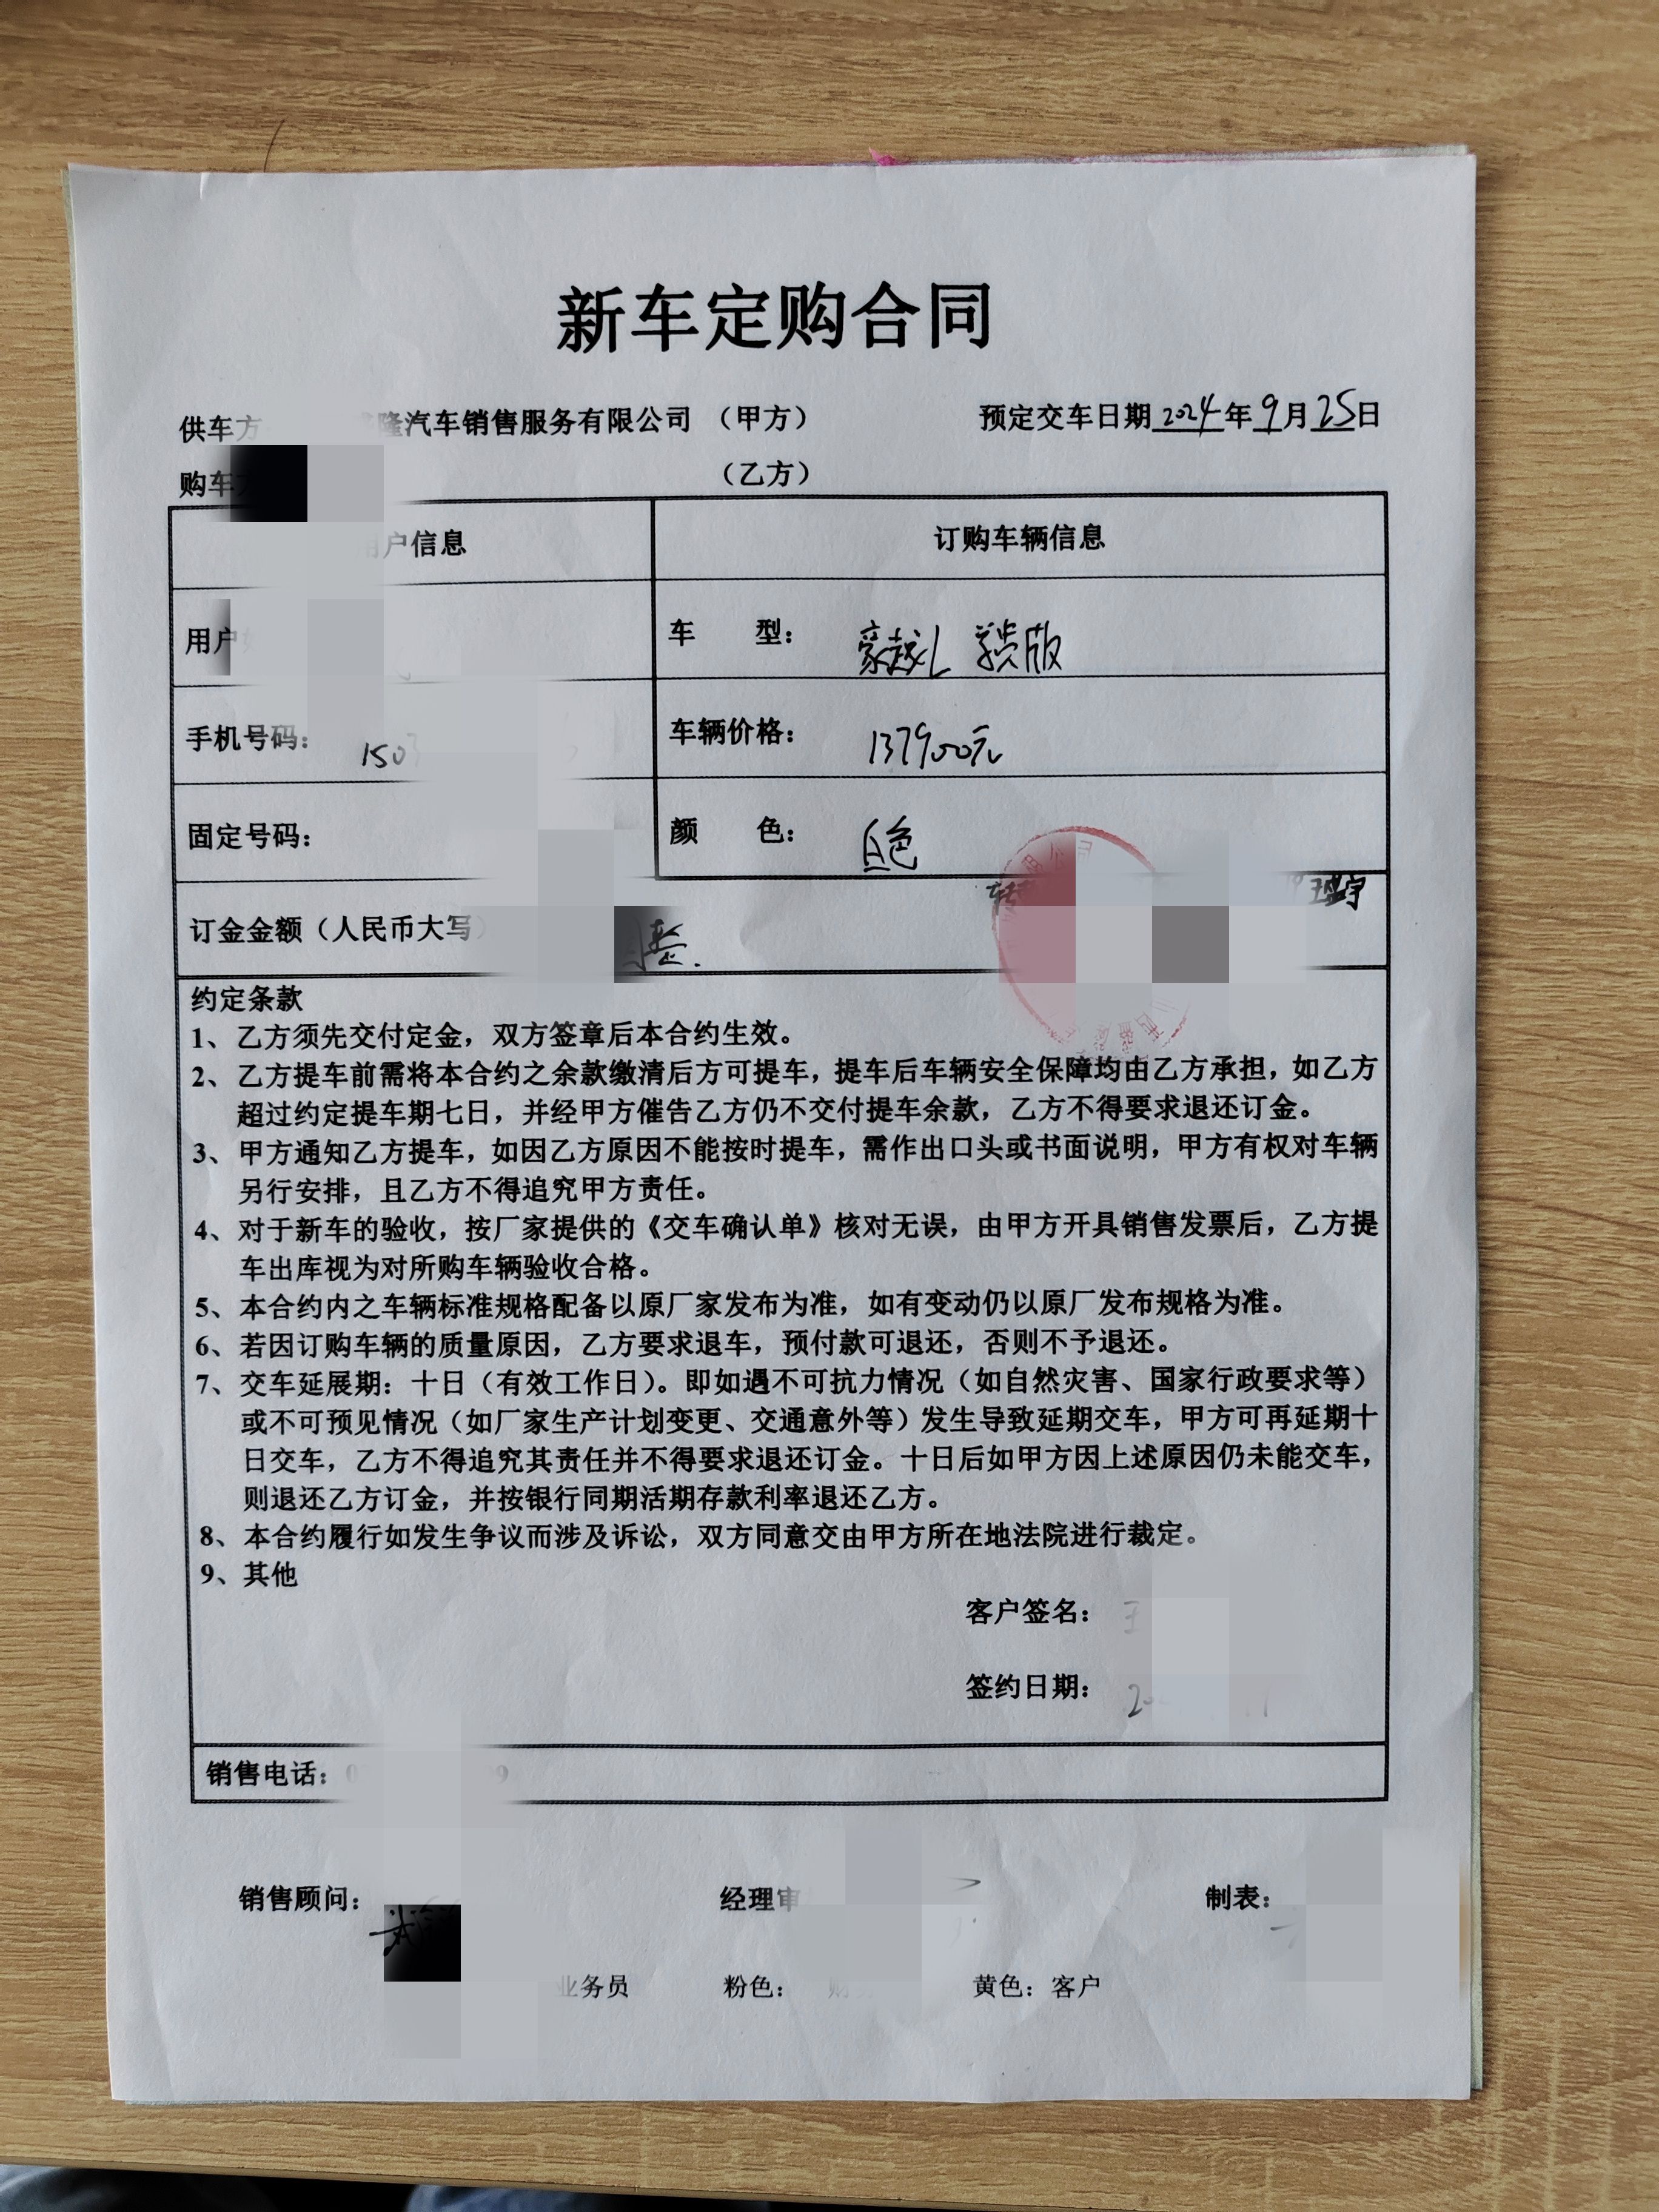 新车定购合同
供车方 隆汽车销售服务有限公司 （甲方） 预定交车日期2024年9月25日
购车 （乙方）
户信息 订购车辆信息
用户 车 型： 豪越L 尊贵版
手机号码： 150 车辆价格： 137900元
固定号码： 颜 色： 白色
订金金额（人民币大写） 整.
约定条款
1、乙方须先交付定金，双方签章后本合约生效。
2、乙方提车前需将本合约之余款缴清后方可提车，提车后车辆安全保障均由乙方承担，如乙方
超过约定提车期七日，并经甲方催告乙方仍不交付提车余款，乙方不得要求退还订金。
3、甲方通知乙方提车，如因乙方原因不能按时提车，需作出口头或书面说明，甲方有权对车辆
另行安排，且乙方不得追究甲方责任。
4、对于新车的验收，按厂家提供的《交车确认单》核对无误，由甲方开具销售发票后，乙方提
车出库视为对所购车辆验收合格。
5、本合约内之车辆标准规格配备以原厂家发布为准，如有变动仍以原厂发布规格为准。
6、若因订购车辆的质量原因，乙方要求退车，预付款可退还，否则不予退还。
7、交车延展期：十日（有效工作日）。即如遇不可抗力情况（如自然灾害、国家行政要求等）
或不可预见情况（如厂家生产计划变更、交通意外等）发生导致延期交车，甲方可再延期十
日交车，乙方不得追究其责任并不得要求退还订金。十日后如甲方因上述原因仍未能交车，
则退还乙方订金，并按银行同期活期存款利率退还乙方。
8、本合约履行如发生争议而涉及诉讼，双方同意交由甲方所在地法院进行裁定。
9、其他
客户签名： 王
签约日期： 20
销售电话：0 9
销售顾问： 经理审 制表：
业务员 粉色： 财 黄色：客户